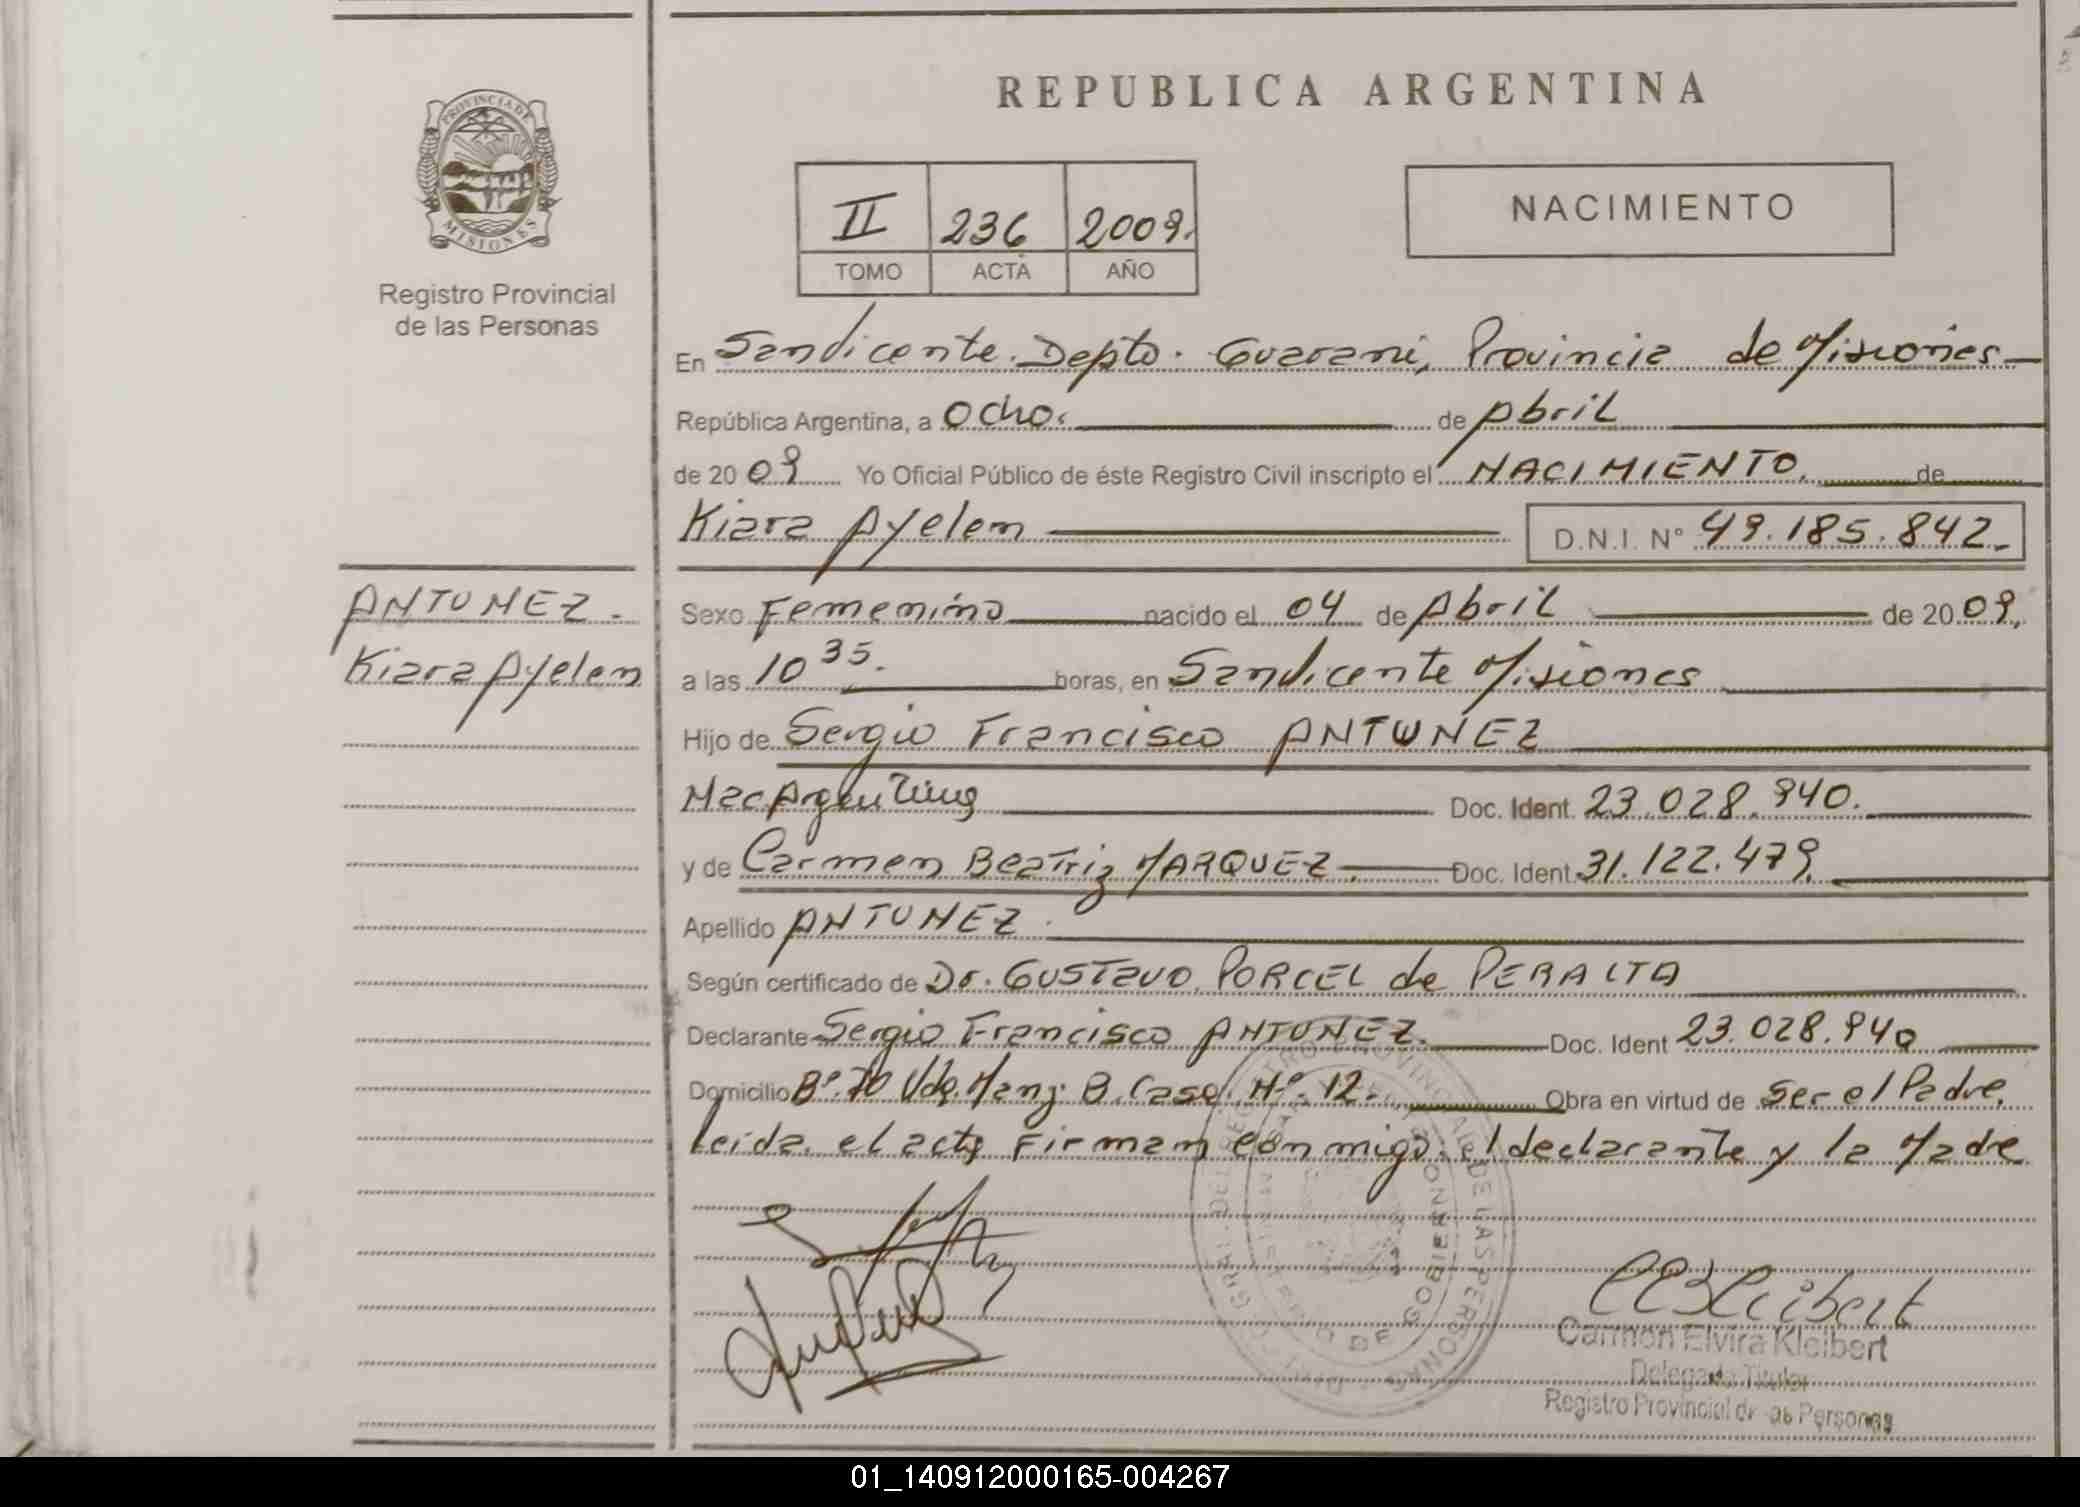 REPUBLICA ARGENTINA
PROVINCIA DE
MISIONES
Registro Provincial
de las Personas
II 236 2009.
TOMO ACTA AÑO
NACIMIENTO
En Sanvicente. Depto. Guarani, Provincia de Misiones
República Argentina, a Ocho. de Abril
de 2009 Yo Oficial Público de éste Registro Civil inscripto el NACIMIENTO. de
Kiara Ayelen D.N.I. Nº 49.185.842.
ANTUNEZ.
Kiara Ayelen
Sexo Femenino nacido el 04 de Abril de 2009.
a las 10 35. horas, en Sanvicente Misiones
Hijo de Sergio Francisco ANTUNEZ
Nac. Argentina Doc. Ident. 23.028.940.
y de Carmen Beatriz MARQUEZ. Doc. Ident. 31.122.479.
Apellido ANTUNEZ.
Según certificado de Dr. GUSTAVO PORCEL de PERALTA
Declarante Sergio Francisco ANTUNEZ. Doc. Ident 23.028.940
Domicilio Bº. 70 Vdas. Manz. B. Casa Nº. 12. Obra en virtud de ser el Padre.
Leida el acta Firman conmigo el declarante y la Madre
Carmen Elvira Kleibert
Delegada Titular
Registro Provincial de las Personas
01_140912000165-004267